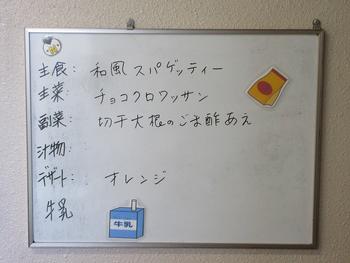 主食： 和風スパゲッティー
主菜： チョコクロワッサン
副菜： 切干大根のごま酢あえ
汁物：
デザート： オレンジ
牛乳
牛乳